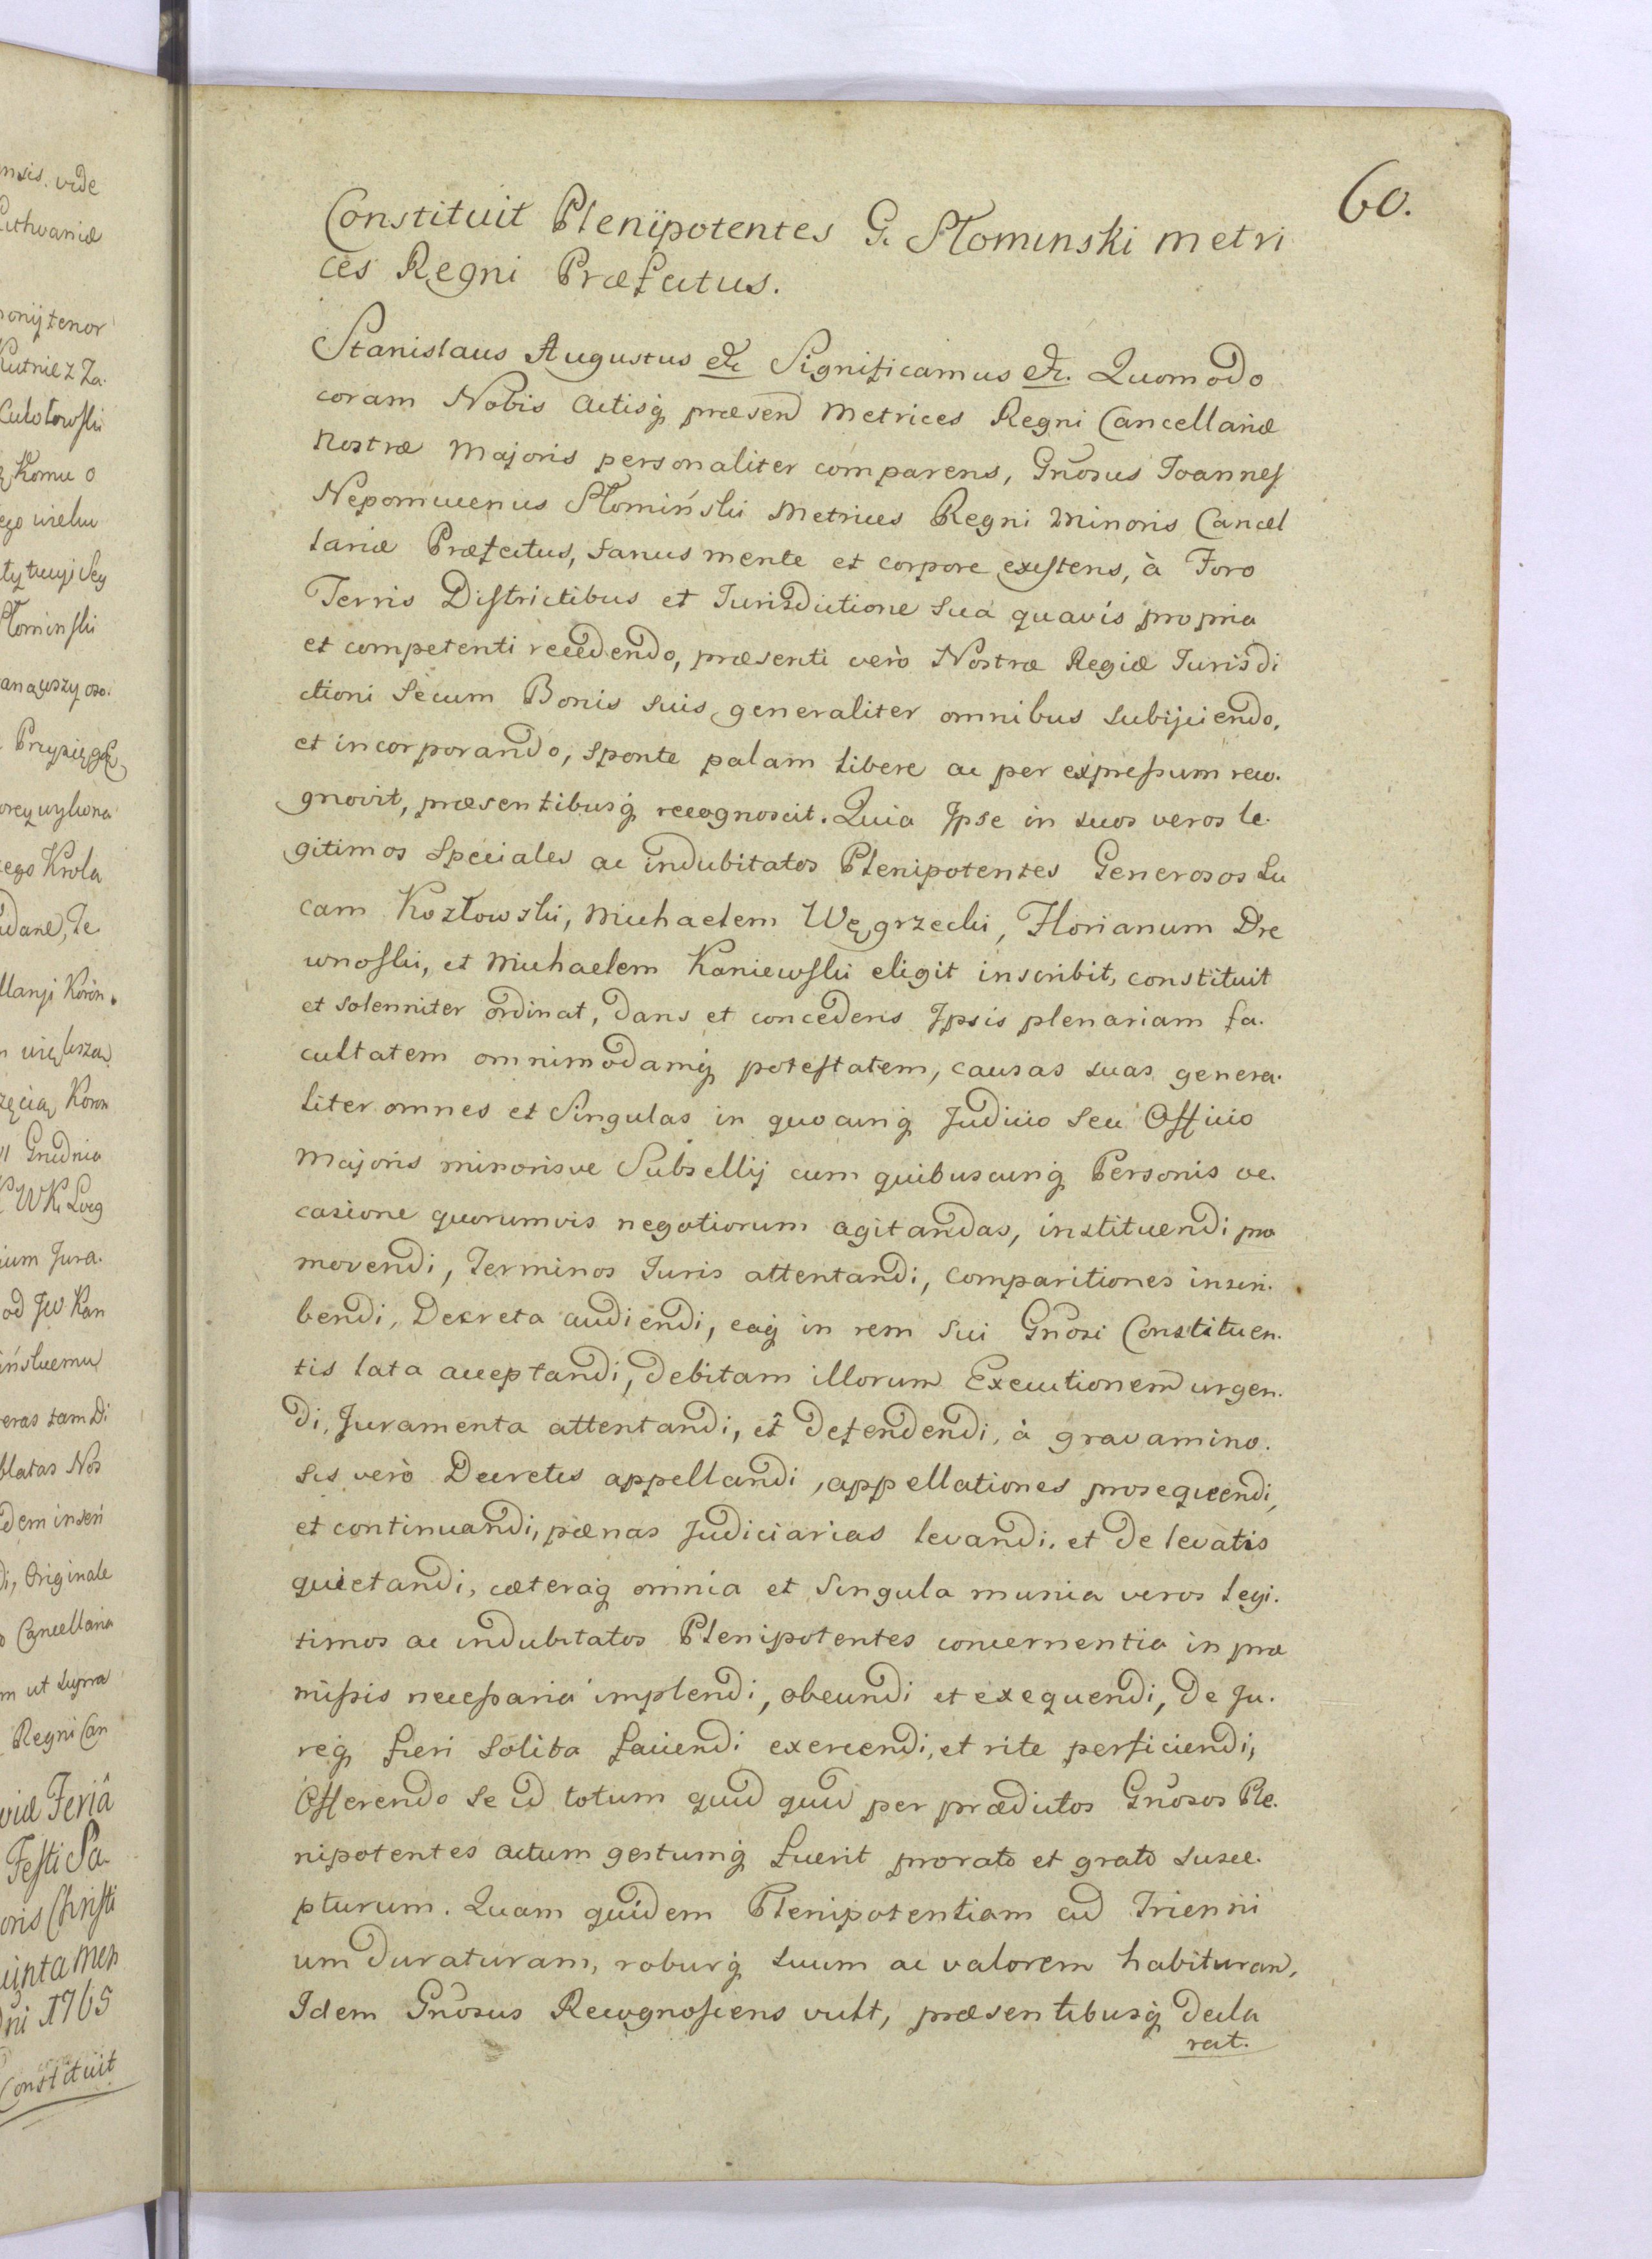 60.
Constituit Plenipotentes G. Słominski metri
ces Regni Præfectus.
Stanislaus Augustus etc Significamus etc. Quomodo
coram Nobis Actisq̃ præsen metrices Regni Cancellariæ
Nostræ Majoris personaliter comparens, Gnosus Joannes
Nepomucenus Słomiński Metrices Regni Minoris Cancel
lariæ Præfectus, sanus mente et corpore existens, à Foro
Terris Districtibus et Jurisdictione sua quavis propria
et competenti recedendo, præsenti verò Nostræ Regiæ Jurisdi
ctioni se cum Bonis suis generaliter omnibus subijciendo,
et incorporando, sponte palam libere ac per expressum reco-
gnovit, præsentibusq̃ recognoscit. Quia Ipse in suos veros le-
gitimos speciales ac indubitatos Plenipotentes Generosos Lu
cam Kozłowski, Michaelem Węgrzecki, Florianum Dre
wnoski, et Michaelem Kaniewski eligit inscribit, constituit
et solenniter ordinat, dans et concedens Ipsis plenariam fa-
cultatem omnimodamq̃ potestatem, causas suas genera-
liter omnes et Singulas in quocunq̃ Judicio seu Officio
Majoris minorisve Subsellij cum quibuscunq̃ Personis oc-
casione quorumvis negotiorum agitandas, instituendi pro
movendi, Terminos Juris attentandi, comparitiones inscri-
bendi, Decreta audiendi, eaq̃ in rem sui Gnosi Constituen-
tis lata acceptandi, debitam illorum Executionem urgen-
di, Juramenta attentandi, et defendendi, à gravamino-
sis verò Decretis appellandi, appellationes prosequendi,
et continuandi, pænas Judiciarias levandi, et de levatis
quietandi, cæteraq̃ omnia et singula munia veros legi-
timos ac indubitatos Plenipotentes concernentia in præ
missis necessaria implendi, obeundi et exequendi, de Ju-
req̃ fieri solita faciendi exercendi, et rite perficiendi,
Offerendo se id totum quid quid per prædictos Gnosos Ple-
nipotentes actum gestumq̃ fuerit pro rato et grato susce-
pturum. Quam quidem Plenipotentiam ad Trienni
um duraturam, roburq̃ suum ac valorem habituram,
Idem Gnosus Recognoscens vult, præsentibusq̃ decla
rat.